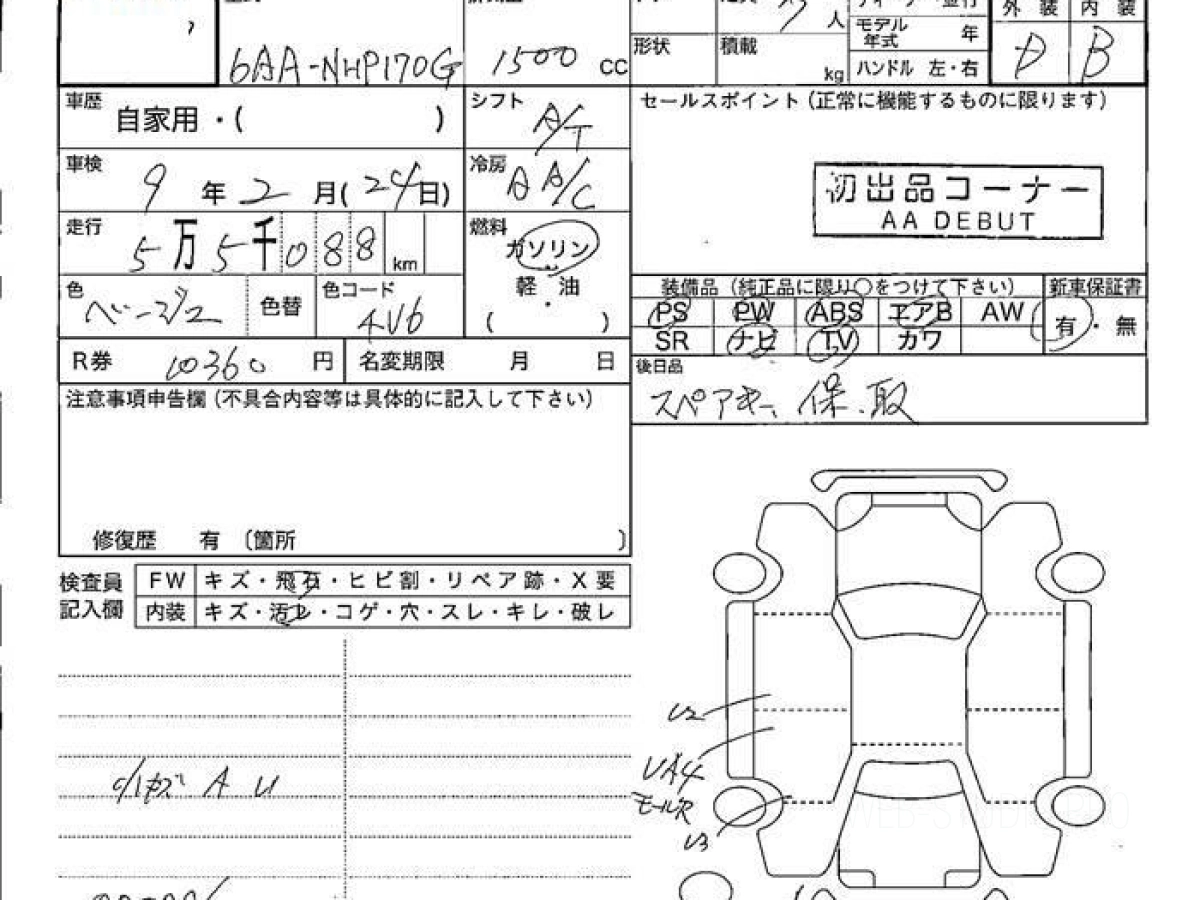 人 モデル年式 年
外装 内装
6AA-NHP170G 1500 cc 形状 積載 kg ハンドル 左・右 D B
車歴 自家用・( ) シフト A/T セールスポイント(正常に機能するものに限ります)
車検 9年2月(24日) 冷房 A A/C
初出品コーナー
AA DEBUT
走行 5万5千088km 燃料 ガソリン
軽・油
( )
色 ベージュ 色替 色コード 4V6
装備品(純正品に限り○をつけて下さい) 新車保証書
PS PW ABS エアB AW 有・無
SR ナビ TV カワ
R券 10360円 名変期限 月 日
後日品
スペアキー、保.取
注意事項申告欄(不具合内容等は具体的に記入して下さい)
修復歴 有 〔箇所 〕
検査員記入欄 FW キズ・飛石・ヒビ割・リペア跡・X要
内装 キズ・汚レ・コゲ・穴・スレ・キレ・破レ
U2
UA4
モールR
U3
小キズ A U